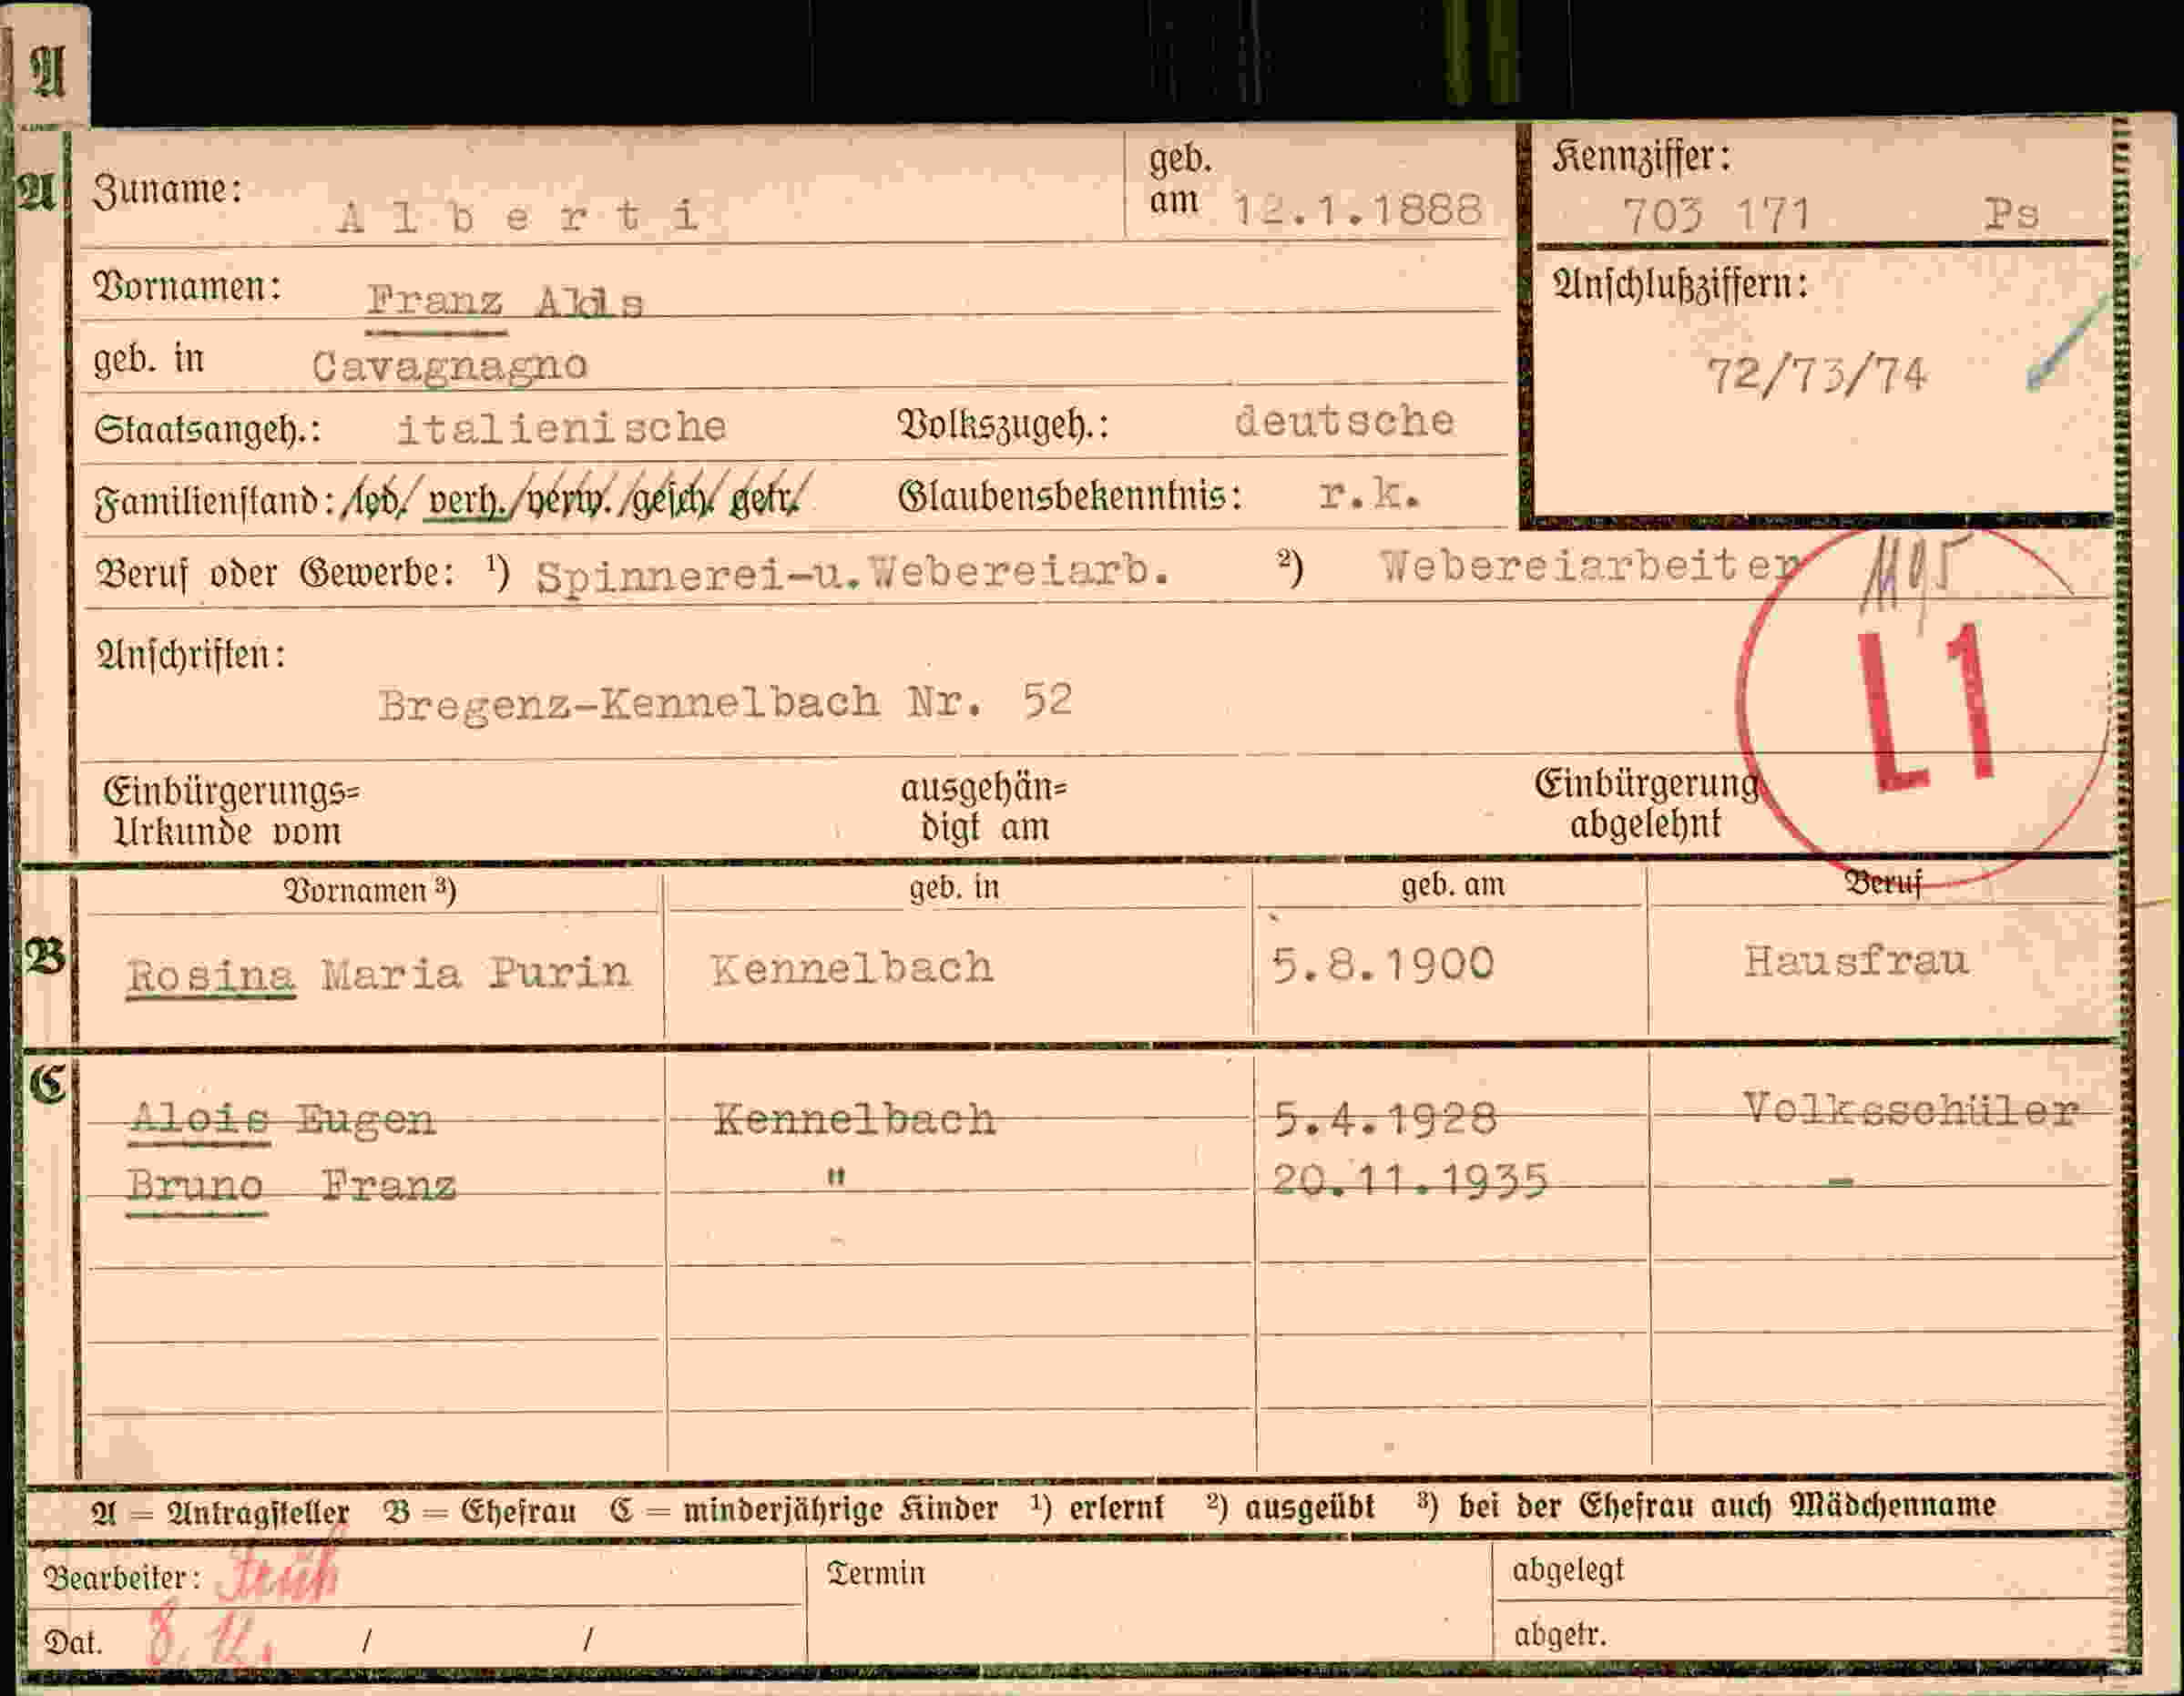 A
A
Zuname: Alberti geb. am 12.1.1888
Kennziffer:
703 171 Ps
Vornamen: Franz
geb. in Cavagnagno
Anschlußziffern:
72/73/74
Staatsangeh.: italienische Volkszugeh.: deutsche
Familienstand: /led/ verh./verw./gesch/ getr/ Glaubensbekenntnis: r.k.
Beruf oder Gewerbe: ¹) Spinnerei-u.Webereiarb. ²) Webereiarbeiter
L1
Anschriften:
Bregenz-Kennelbach Nr. 52
Einbürgerungs=
Urkunde vom
ausgehän=
digt am
Einbürgerung
abgelehnt
Vornamen ³) geb. in geb. am Beruf
B Rosina Maria Purin Kennelbach 5.8.1900 Hausfrau
C
Alois Eugen Kennelbach 5.4.1928 Volksschüler
Bruno Franz " 20.11.1935 -
A = Antragsteller B = Ehefrau C = minderjährige Kinder ¹) erlernt ²) ausgeübt ³) bei der Ehefrau auch Mädchenname
Bearbeiter: Termin abgelegt
Dat. 8.12. / / abgetr.